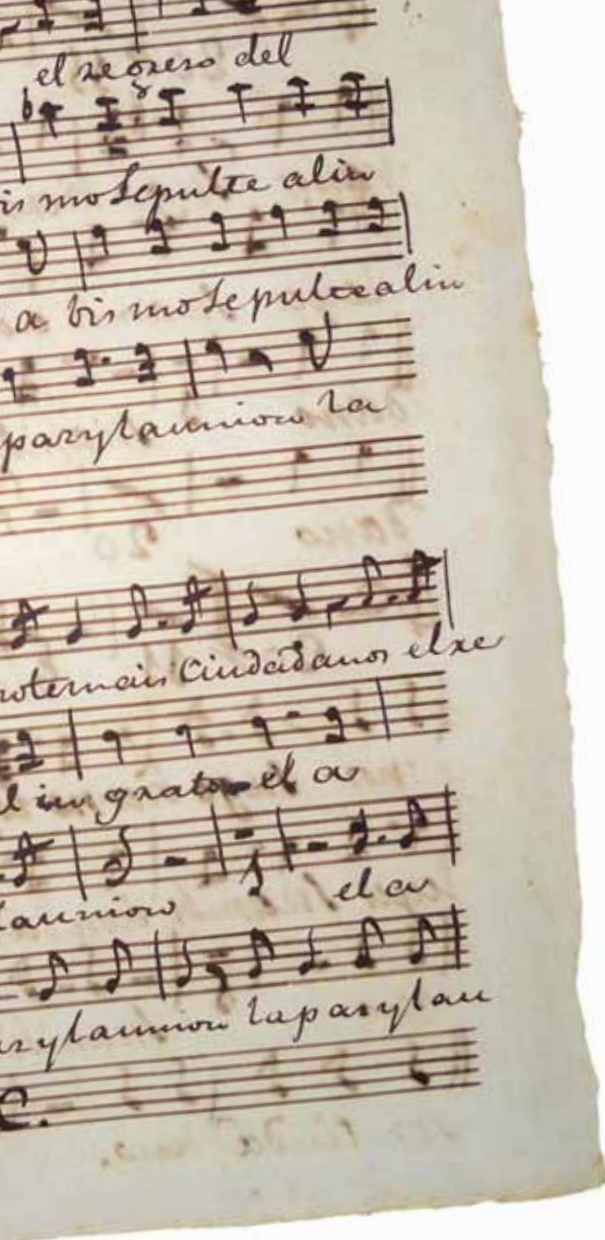 el regreso del
is mo sepulte alin
a bis mo sepultealin
pazylaunion la
rotemais Ciudadanos elxe
l in grato el a
launion el a
zylaunion lapazylau
C.